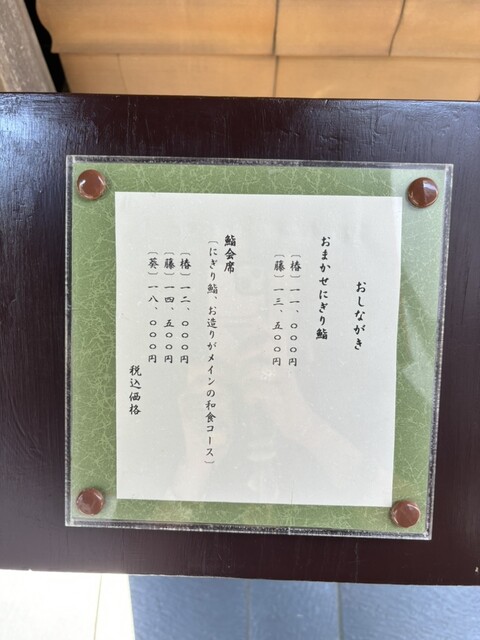 おしながき
おまかせにぎり鮨
〔椿〕一一、〇〇〇円
〔藤〕一三、五〇〇円
鮨会席
〔にぎり鮨、お造りがメインの和食コース〕
〔椿〕一二、〇〇〇円
〔藤〕一四、五〇〇円
〔葵〕一八、〇〇〇円
税込価格